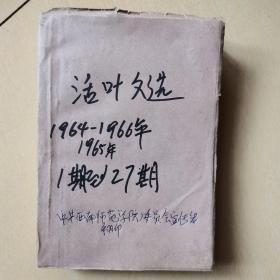 活叶文选
1964-1966年
1965年
1期到27期
中共西南师范学院委员会宣传部
印